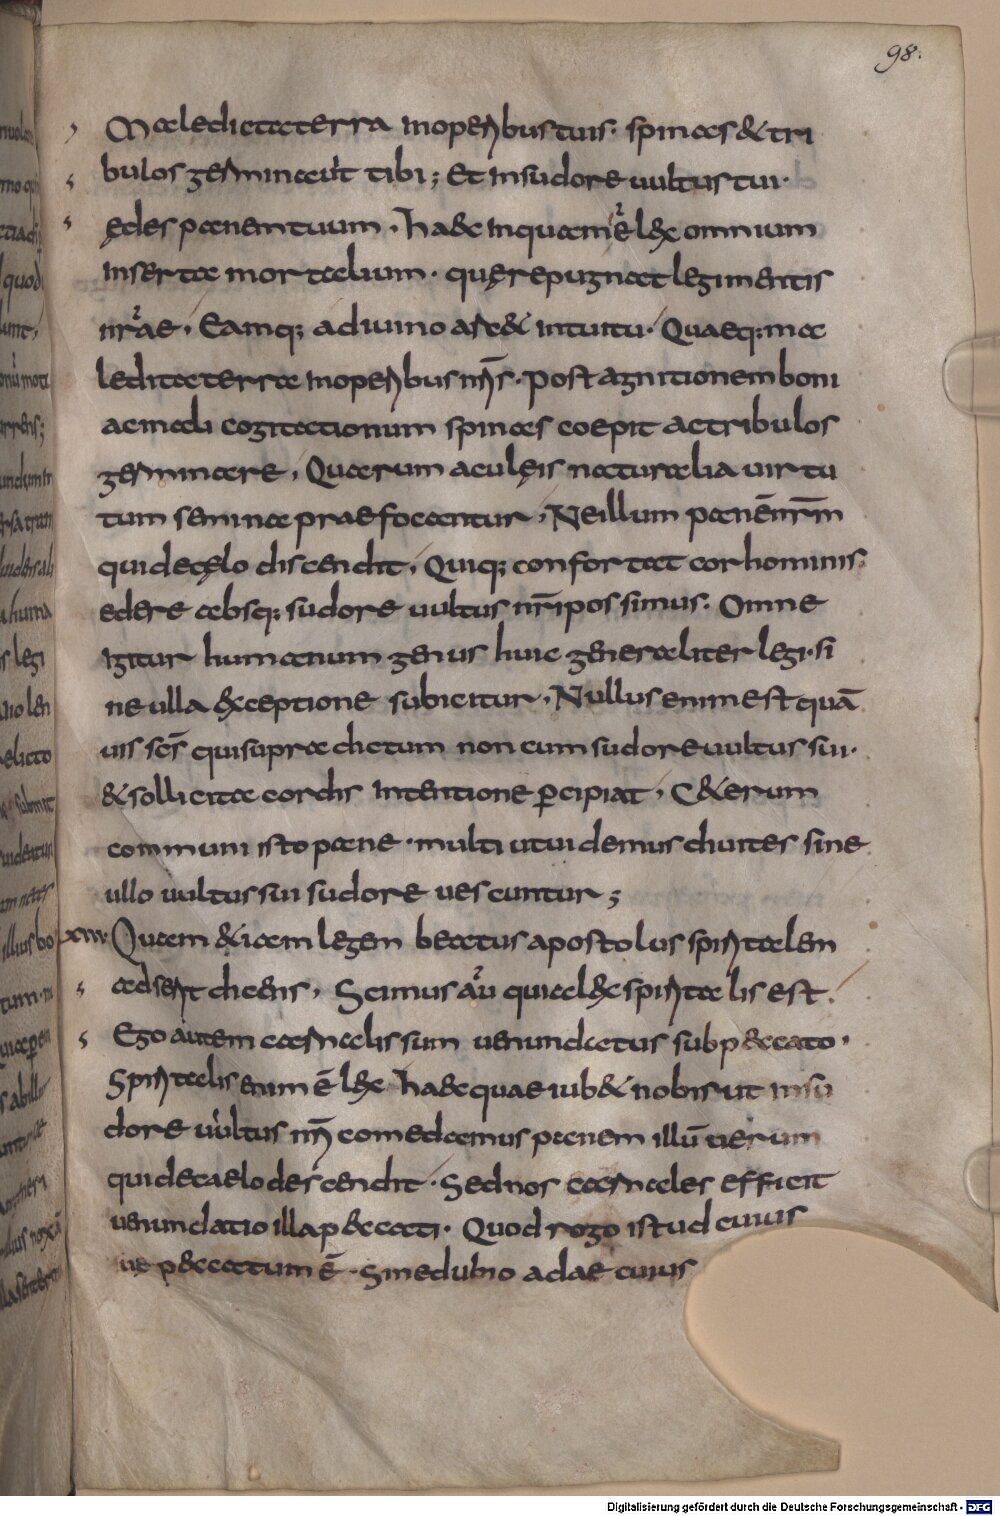 98.
Maledicta terra in operibus tuis· spinas & tri
bulos germinauit tibi; Et in sudore uultus tui·
edes panem tuum· Haec inquam ÷ lex omnium
inserta mortalium· quę repugnat legi mentis
nr̄ae, Eamq; a diuino arc& intuitu· Quaeq; ma
ledicta terra in operibus nr̄is· post agnitionem boni
ac mali cogitationum spinas coepit ac tribulos
germinare, Quarum aculeis naturalia uirtu
tum semina praefocantur, Ne illum panē nr̄m
qui de cęlo discendit, Quiq; confortat cor hominis·
edere absq; sudore uultus nr̄i possimus· Omne
igitur humanum genus huic generaliter legi· si
ne ulla exceptione subicitur, Nullus enim est quā
uis scs̄ qui supra dictum non cum sudore uultus sui·
& sollicita cordis intentione p̄cipiat, C&erum
communi isto pane· multi ut uidemus diuites sine
ullo uultus sui sudore uescuntur;
Quam &iam legem beatus apostolus spiritalem
adserit dicens, Scimus aū quia lex spiritalis est·
Ego autem carnalis sum uenundatus sub peccato·
Spiritalis enim ē lex haec quae iub& nobis ut in su
dore uultus nri comedamus panem illū uerum
qui de caelo descendit· Sed nos carnales efficit
uenundatio illa peccati· Quod rogo istud cuius
ue peccatum ē· Sine dubio adae cuius
Digitalisierung gefördert durch die Deutsche Forschungsgemeinschaft - DFG